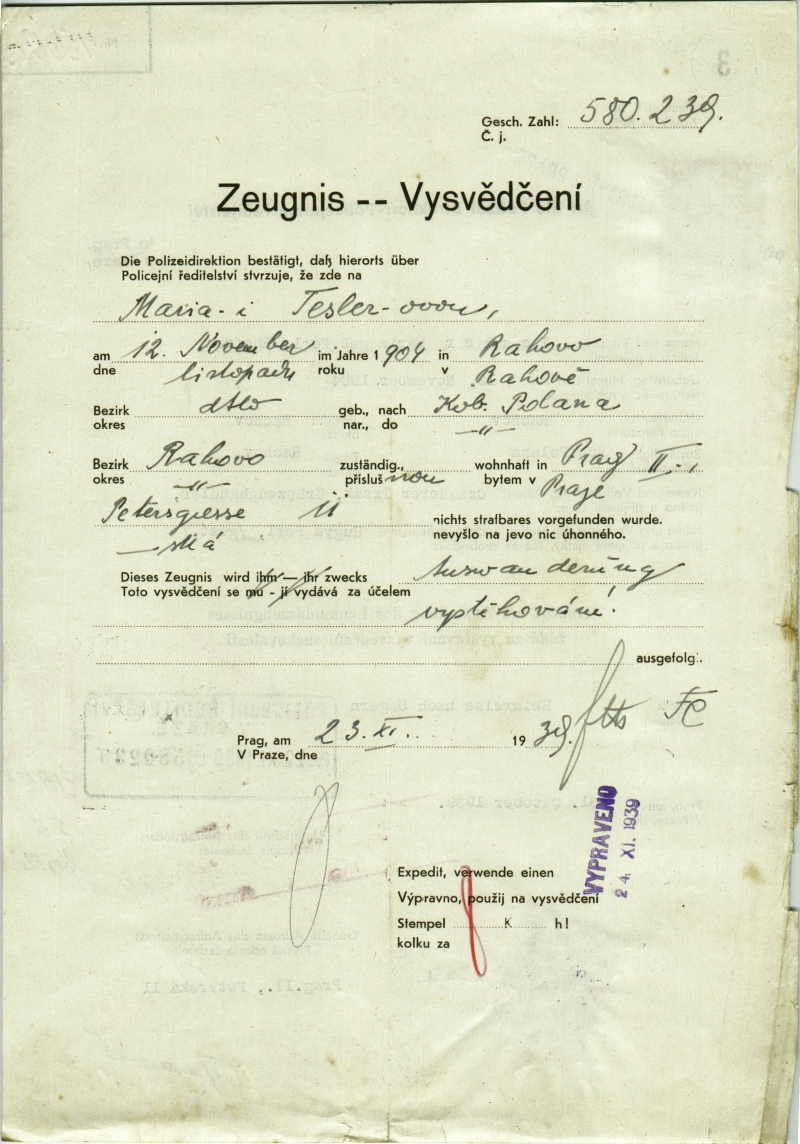 Gesch. Zahl: 580.239.
Č. j.
Zeugnis -- Vysvědčení
Die Polizeidirektion bestätigt, daß hierorts über
Policejní ředitelství stvrzuje, že zde na
Maria-i Tesler-ovou,
am 12. November im Jahre 1904 in Rahovo
dne listopadu roku v Rahově
Bezirk dtto geb., nach Kob. Polana
okres nar., do —„—
Bezirk Rahovo zuständig., wohnhaft in Prag II.,
okres —„— příslušnou bytem v Praze
Petersgasse 11 nichts strafbares vorgefunden wurde.
—ská nevyšlo na jevo nic úhonného.
Dieses Zeugnis wird ihm — ihr zwecks Auswanderung
Toto vysvědčení se mu - jí vydává za účelem
vystěhování.
ausgefolgt.
Prag, am 23. XI. 1939.
V Praze, dne
VYPRAVENO
24. XI. 1939
Expedit, verwende einen
Výpravno, použij na vysvědčení
Stempel K h!
kolku za